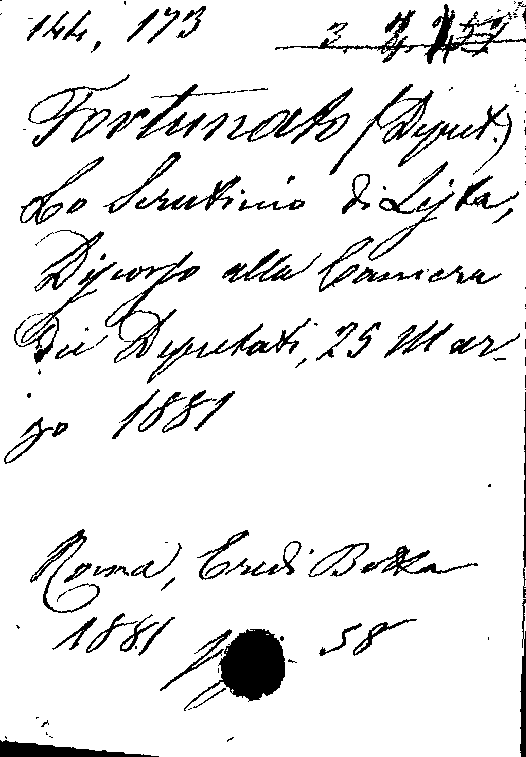 144, 173
Fortunato (Deput.)
Lo Scrutinio di Lista,
Discorso alla Camera
dei Deputati, 25 Mar-
zo 1881
Roma, Eredi Botta
1881 58